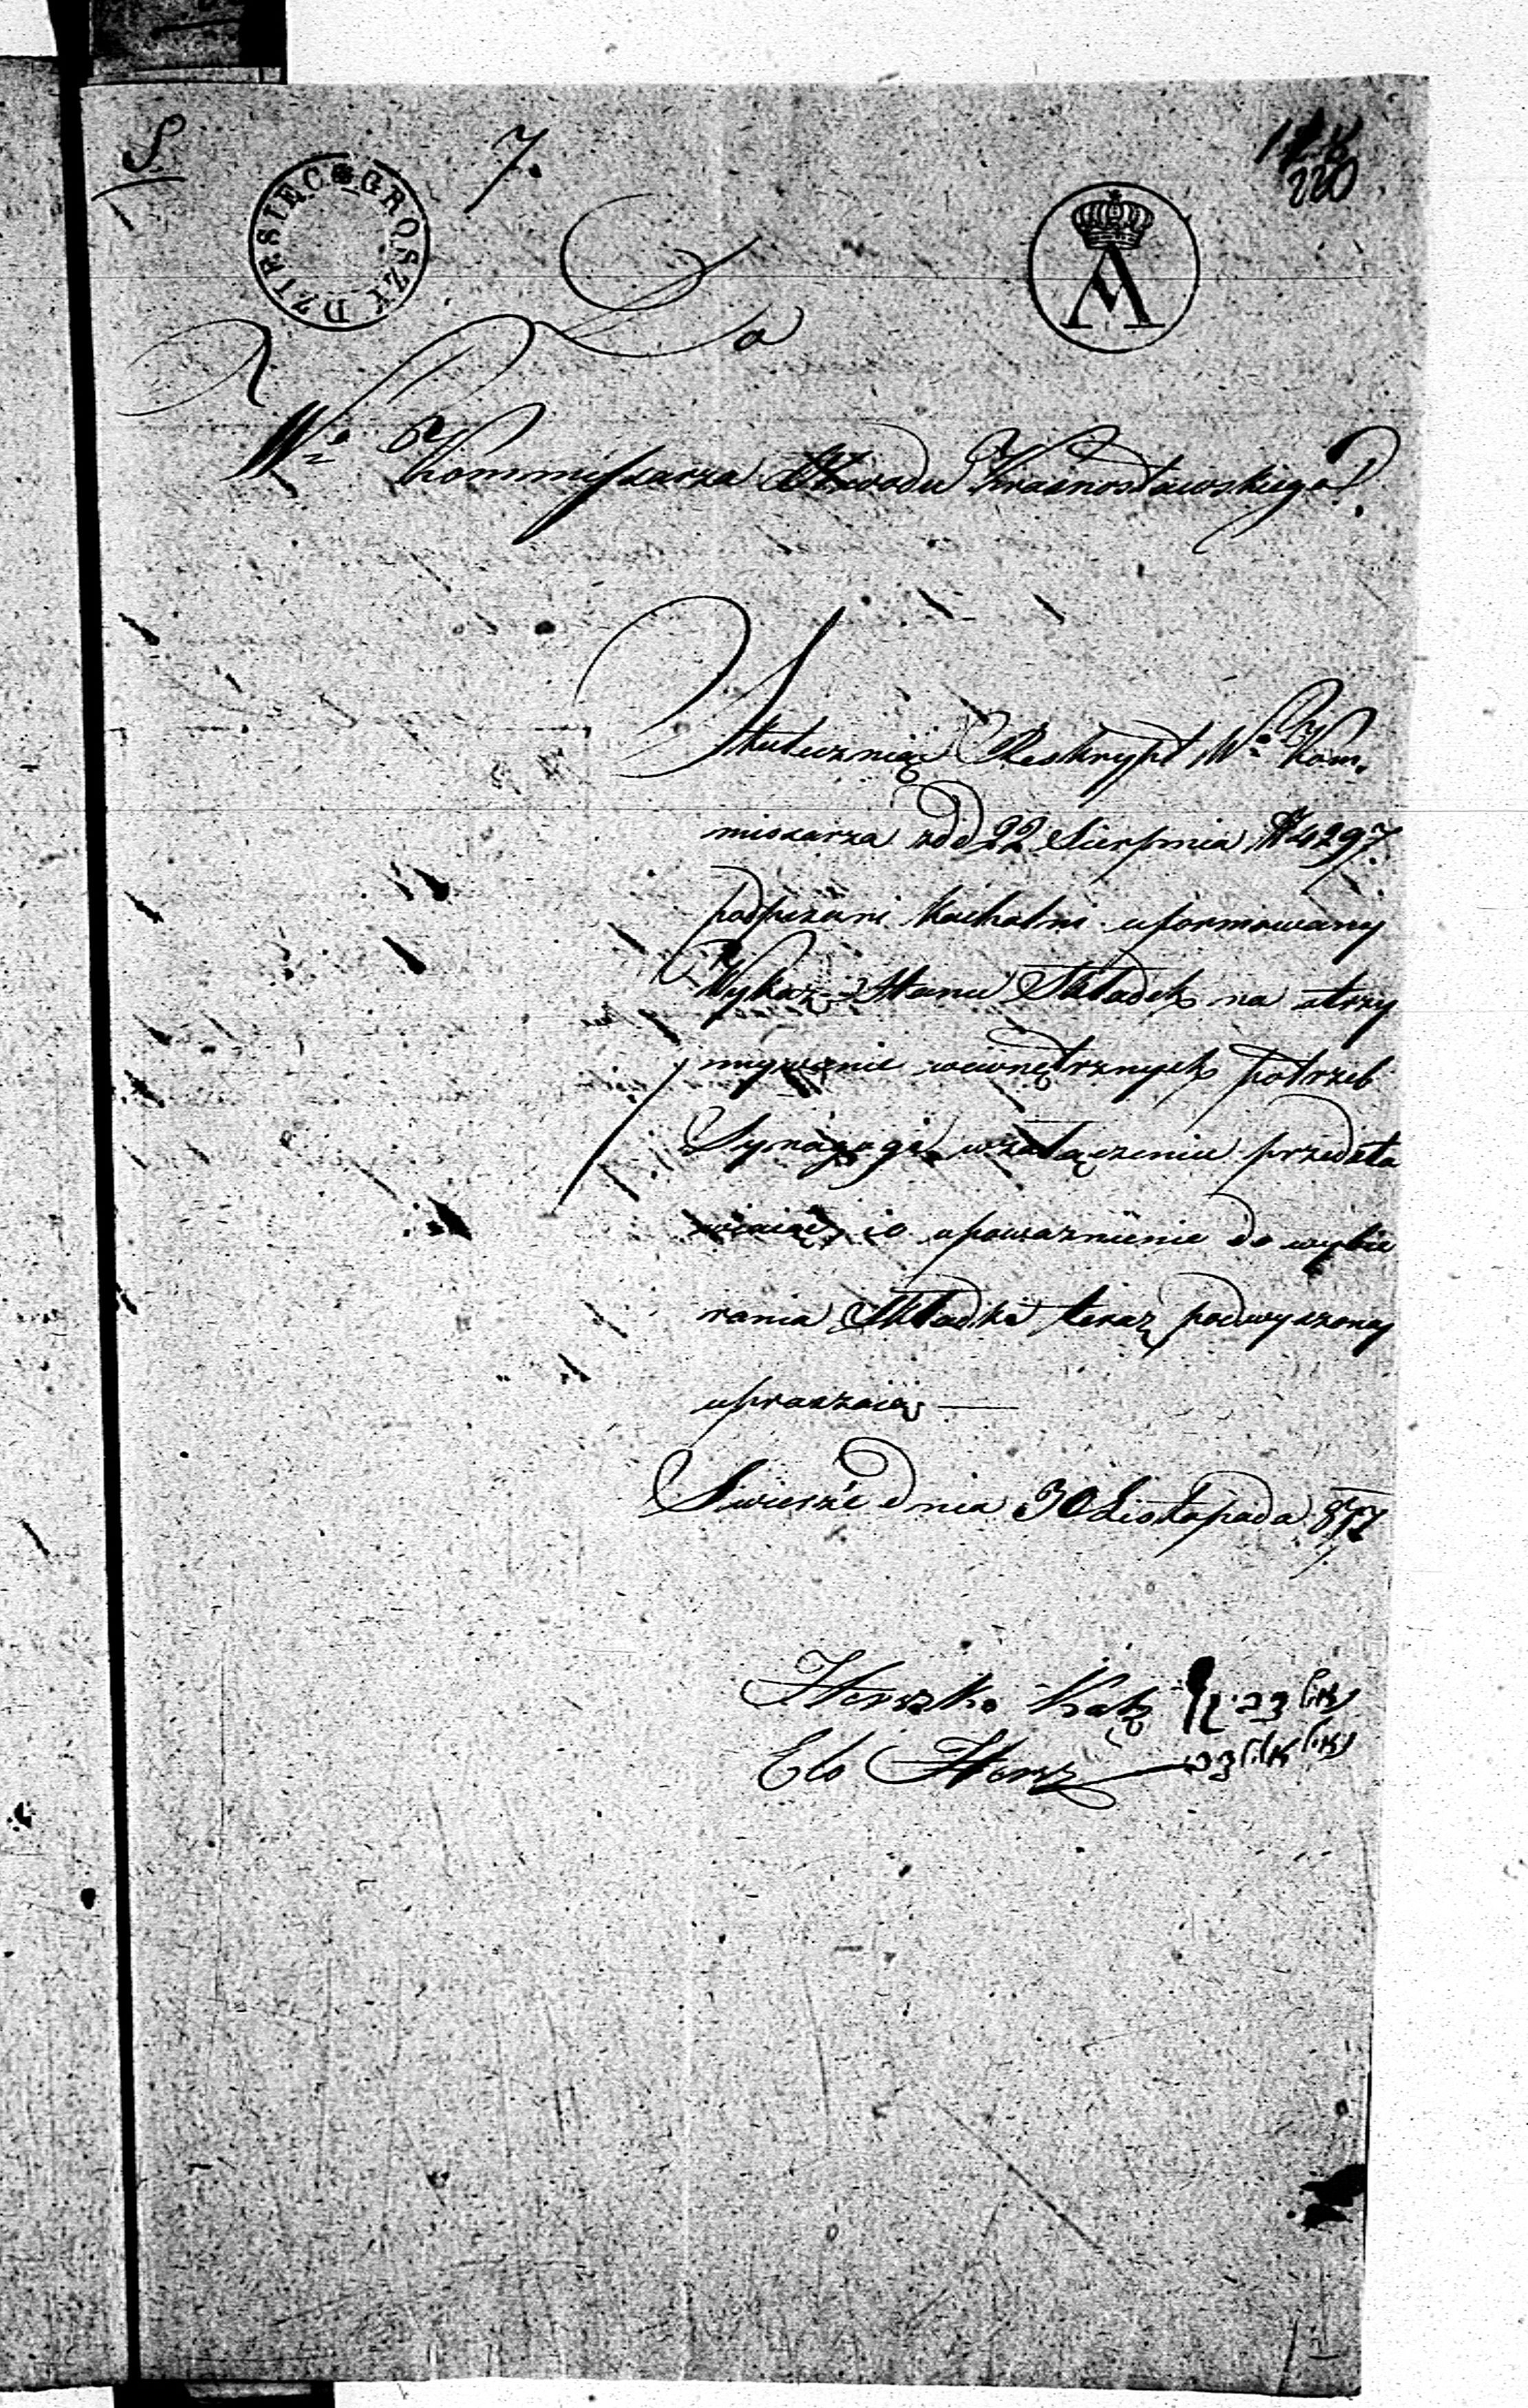 S.
7.
220
DZIESIĘC GROSZY
A
Do
Wo Kommissarza Obwodu Krasnostawskiego
Skuteczniąc Reskrypt Wo Kom
missarza z dd 22 Sierpnia N 4297
podpisani Kachalni uformowany
Wykaz Stanu Składek na utrzy
mywanie wewnętrznych potrzeb
Synagogi w załączeniu przedsta
wiaiąc i o upoważnienie do wybie
rania Składki teraz podwyszony
upraszaią —
Swierże dnia 30 Listopada
Herszko Katz נאול צבי כץ
Elo Hersz נאול אלי צבי